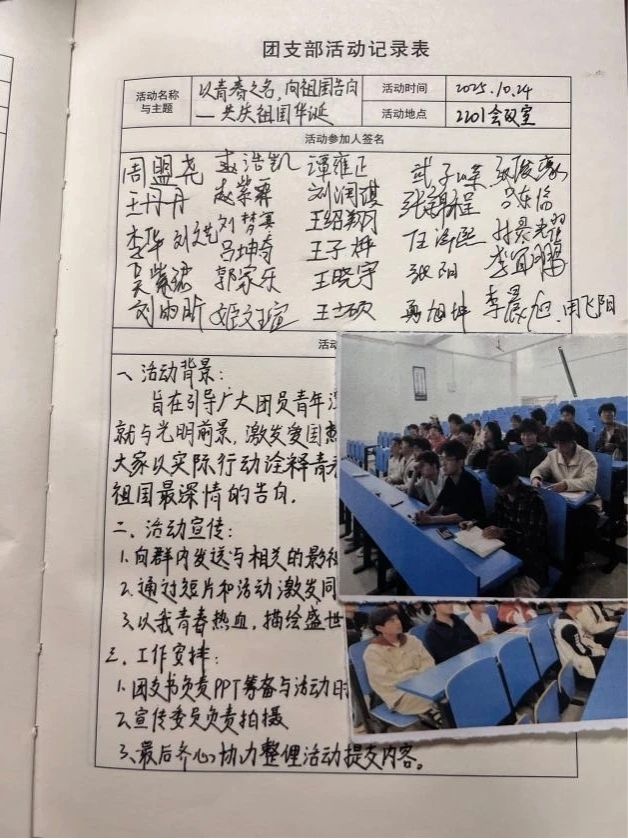 团支部活动记录表
活动名称与主题
以青春之名,向祖国告白
—共庆祖国华诞
活动时间
2025.10.24
活动地点
2201会议室
活动参加人签名
周盟尧 浩凯 谭雍正
王丹丹 赵紫霖 刘润琪
李华 刘文艺 刘梦 王绍翔
吕坤奇 王子 林景耀
吴紫 郭家乐 王晓宇 张阳 李
刘雨昕 姬 王 旭坤 李晨旭 田飞阳
活
一、活动背景:
旨在引导广大团员青年
就与光明前景,激发爱国
大家以实际行动诠释青
祖国最深情的告白.
二、活动宣传:
1.向群内发送与相关的影视
2.通过短片和活动激发同
3.以我青春热血,描绘盛世
三、工作安排:
1.团支书负责PPT筹备与活动
2.宣传委员负责拍摄
3.最后齐心协力整理活动提交内容。